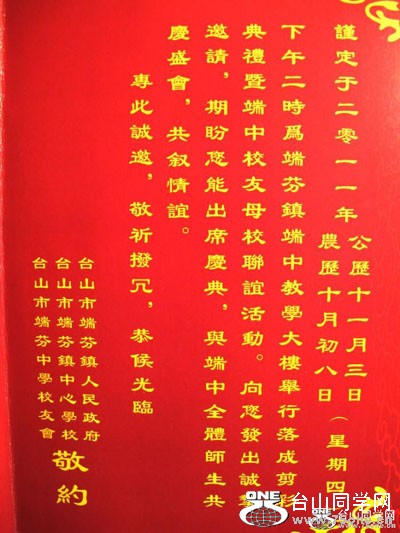 謹定于二零一一年
公歷十一月三日
農歷十月初八日
（星期四
下午二時爲端芬鎮端中教學大樓舉行落成剪彩
典禮暨端中校友母校聯誼活動。向您發出誠摯
邀請，期盼您能出席慶典，與端中全體師生共
慶盛會，共叙情誼。
專此誠邀，敬祈撥冗，恭候光臨
台山市端芬鎮人民政府
台山市端芬鎮中心學校
台山市端芬中學校友會
敬約
ONE 台山同学网